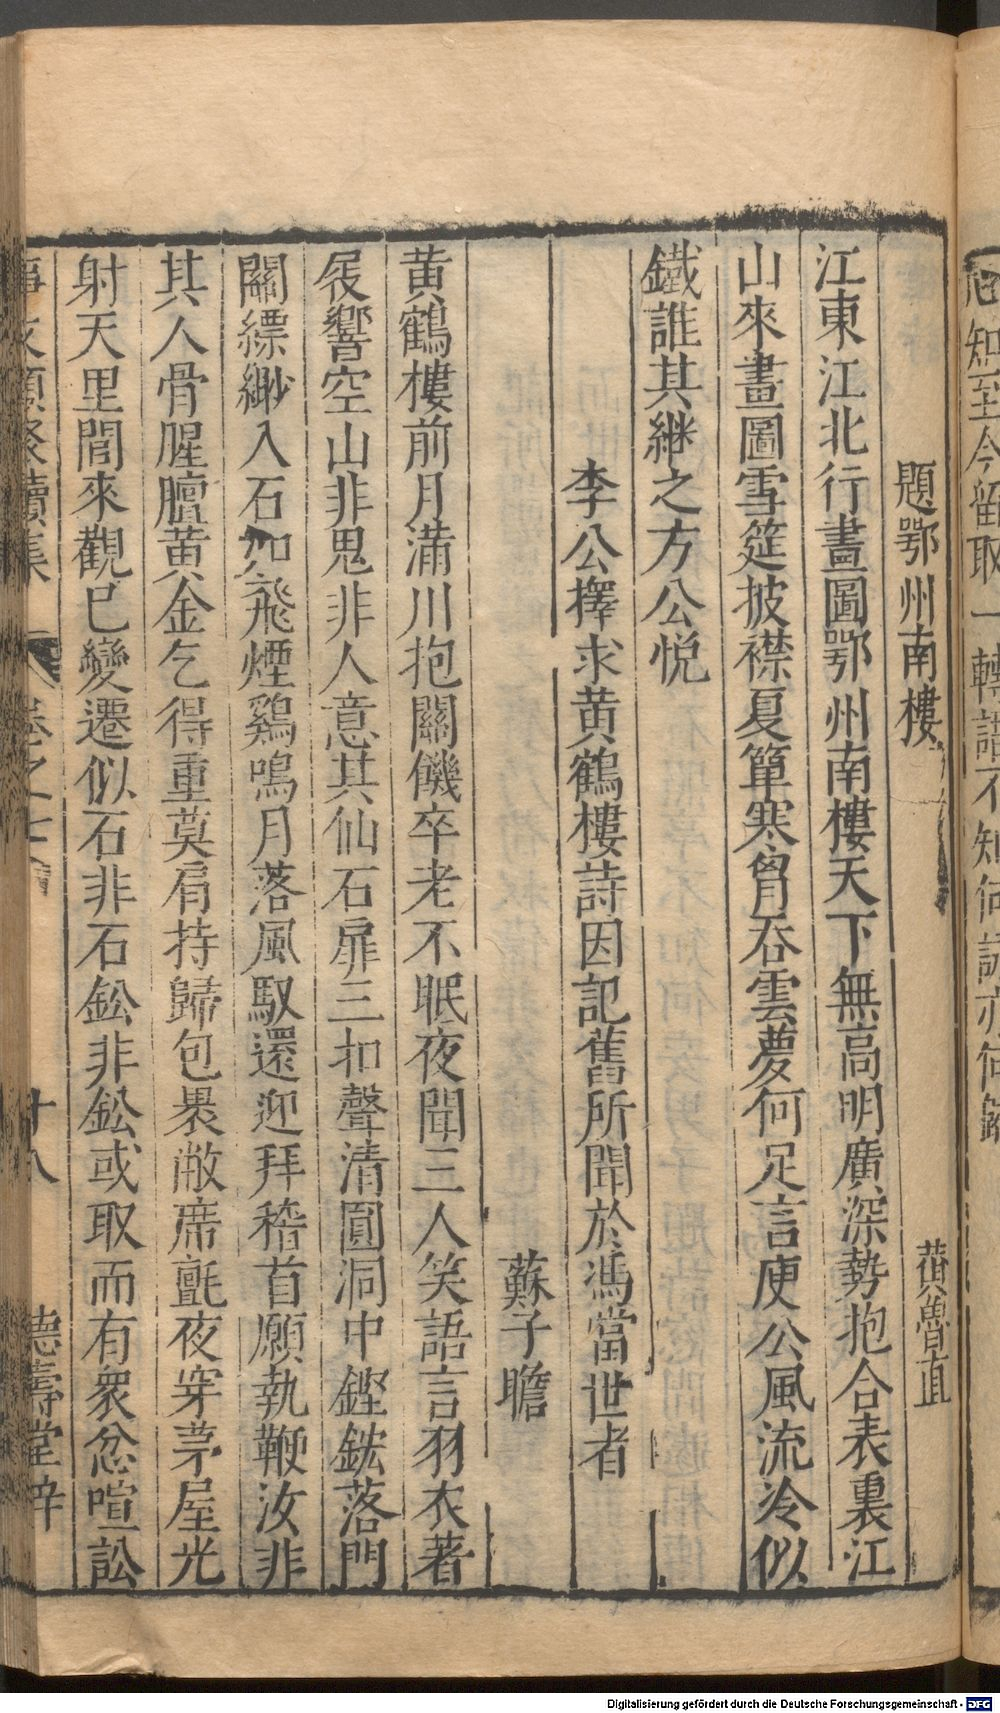 題鄂州南樓 黃魯直
江東江北行畫圖鄂州南樓天下無高明廣深勢抱合表裏江
山來畫圖雪筵披襟夏簟寒胷吞雲夢何足言庾公風流冷似
鐵誰其継之方公悅
李公擇求黄鶴樓詩因記舊所聞於馮當世者
蘇子瞻
黄鶴樓前月滿川抱關僟卒老不眠夜聞三人笑語言羽衣著
屐響空山非鬼非人意其仙石扉三扣聲清圓洞中鏗鈜落門
關縹緲入石如飛煙鷄鳴月落風馭還迎拜稽首願執鞭汝非
其人骨腥膻黄金乞得重莫肩持歸包裹敝席氈夜穿茅屋光
射天里閭來觀已變遷似石非石鈆非鈆或取而有衆忿喧訟
事文類聚續集 卷之七 十八 德壽堂梓
知至今留取一轉語不知何
Digitalisierung gefördert durch die Deutsche Forschungsgemeinschaft - DFG